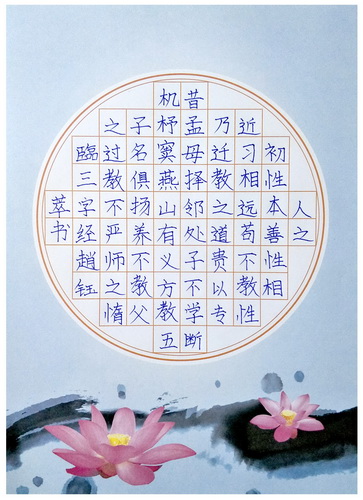 人之
初性本善性相
近习相远苟不教性
乃迁教之道贵以专
昔孟母择邻处子不学断
机杼窦燕山有义方教五
子名俱扬养不教父
之过教不严师之惰
臨三字经趙钰
萃书